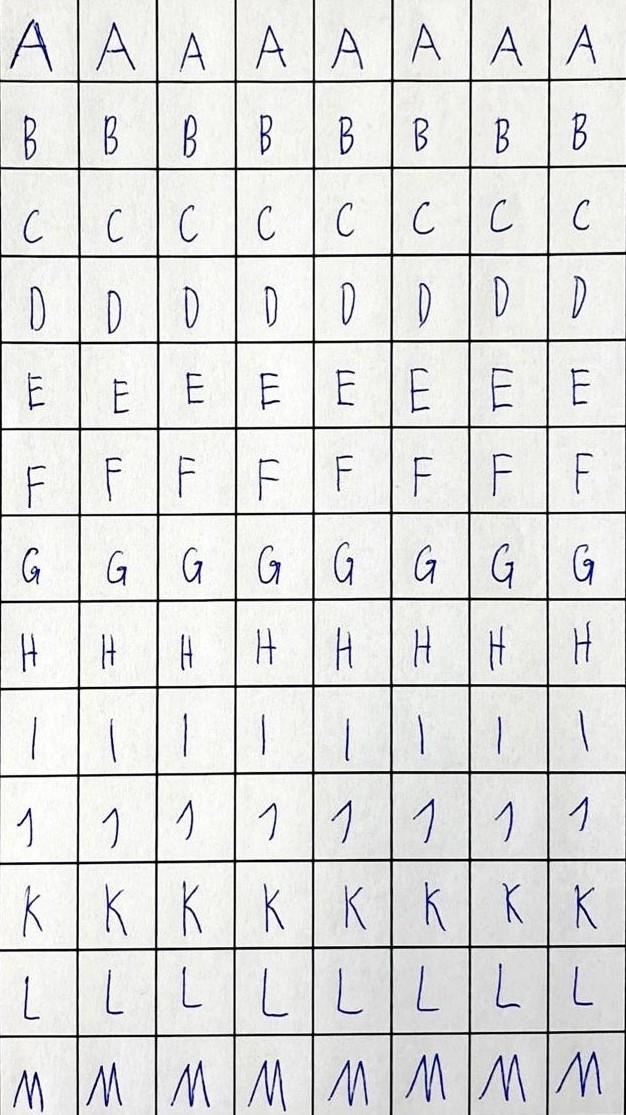 A A A A A A A A
B B B B B B B B
C C C C C C C C
D D D D D D D D
E E E E E E E E
F F F F F F F F
G G G G G G G G
H H H H H H H H
I I I I I I I I
1 1 1 1 1 1 1 1
K K K K K K K K
L L L L L L L L
M M M M M M M M